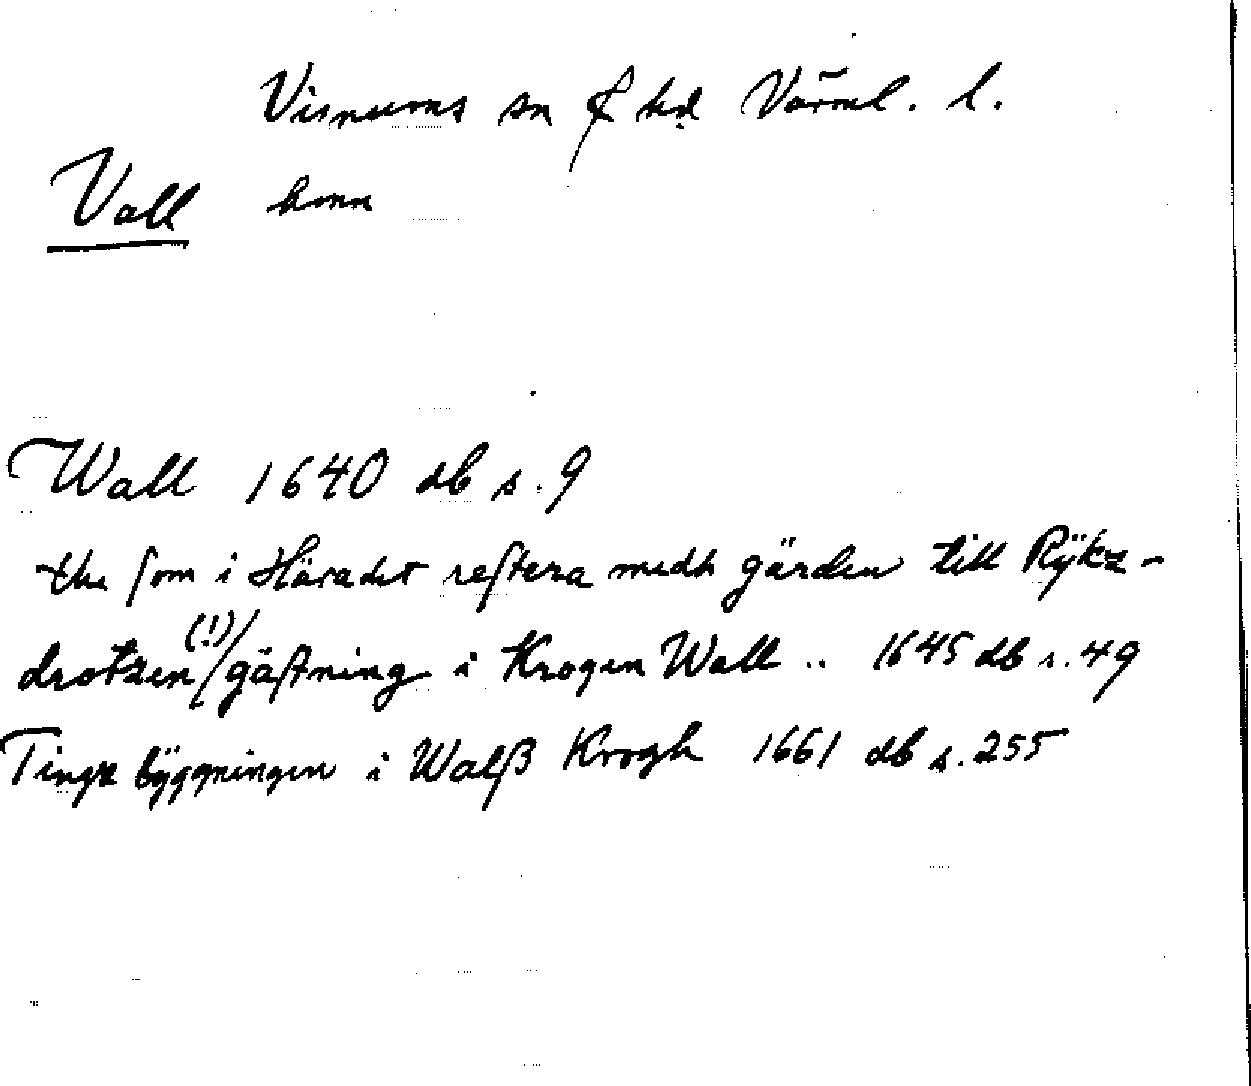 Visnums sn ₵ hd Värml. l.
Vall hmn
Wall 1640 db s. 9
the som i Häradet restera medh gärden till Rÿkz-
drotzen (!)/ gästning i Krogen Wall .. 1645 db s. 49
Tingz bÿggningen i Walß Krogh 1661 db s. 255